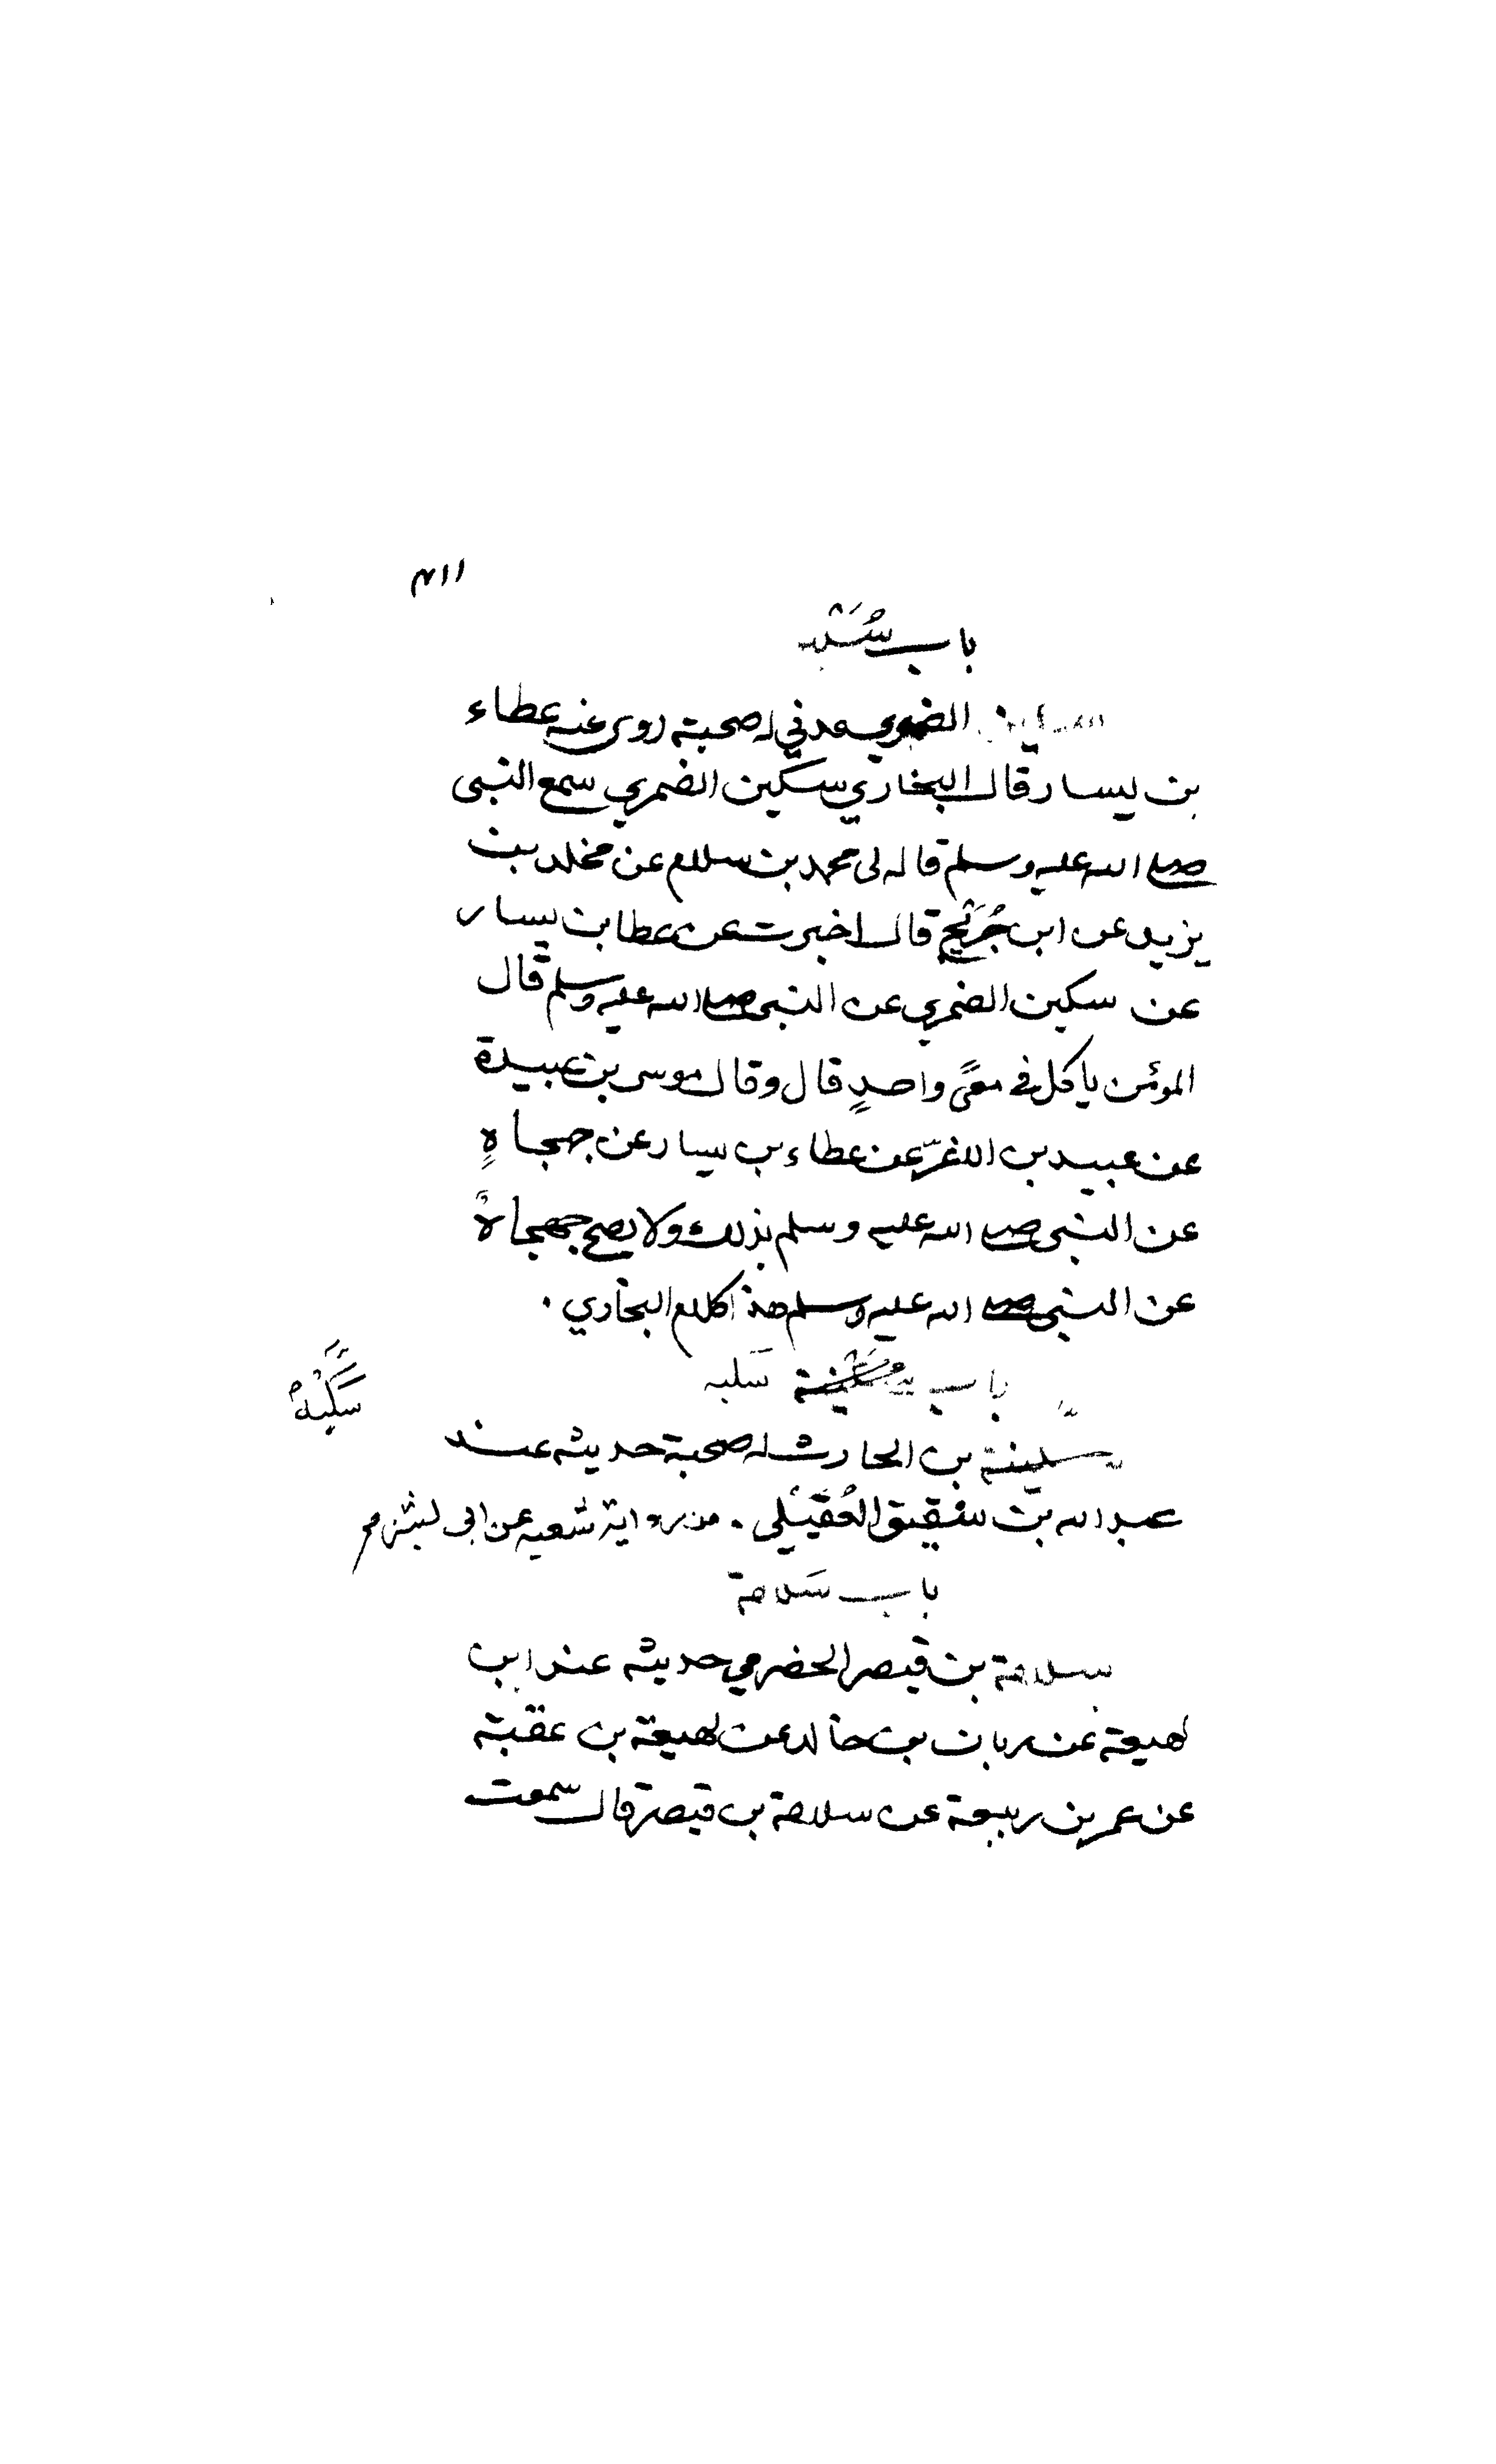 ١١٣
باب
الضمري مدني له صحبة روى عنه عطاء
بن يسار قال البخاري سكين الضمري سمع النبي
صلى الله عليه وسلم قاله لى محمد بن سلام عن مخلد بن
يزيد عن ابن جُرَيْج قال اخبرت عن عطا بن يسار
عن سكين الضمري عن النبي صلى الله عليه وسلم قال
المؤمن يأكل في معًى واحدٍ قال وقال موسى بن عبيدة
عن عبيد بن الاغرّ عن عطاء بن يسار عن جهجاهٍ
عن النبي صلى الله عليه وسلم بذلك ولا يصح جهجاهٌ
عن النبي صلى الله عليه وسلم هذا كلام البخاري ٠
باب
بن الحارث له صحبة حديثه عند
عبد الله بن شقيق العُقَيْلي ٠ من رواية شعبة عن ابى بشر
باب سَلامة
سلامة بن قيصر الحضرمي حديثه عند ابن
لهيعة عن زبان بن خالد عن لهيعة بن عقبة
عن عمر بن ربيعة عن سلامة بن قيصر قال سمعت